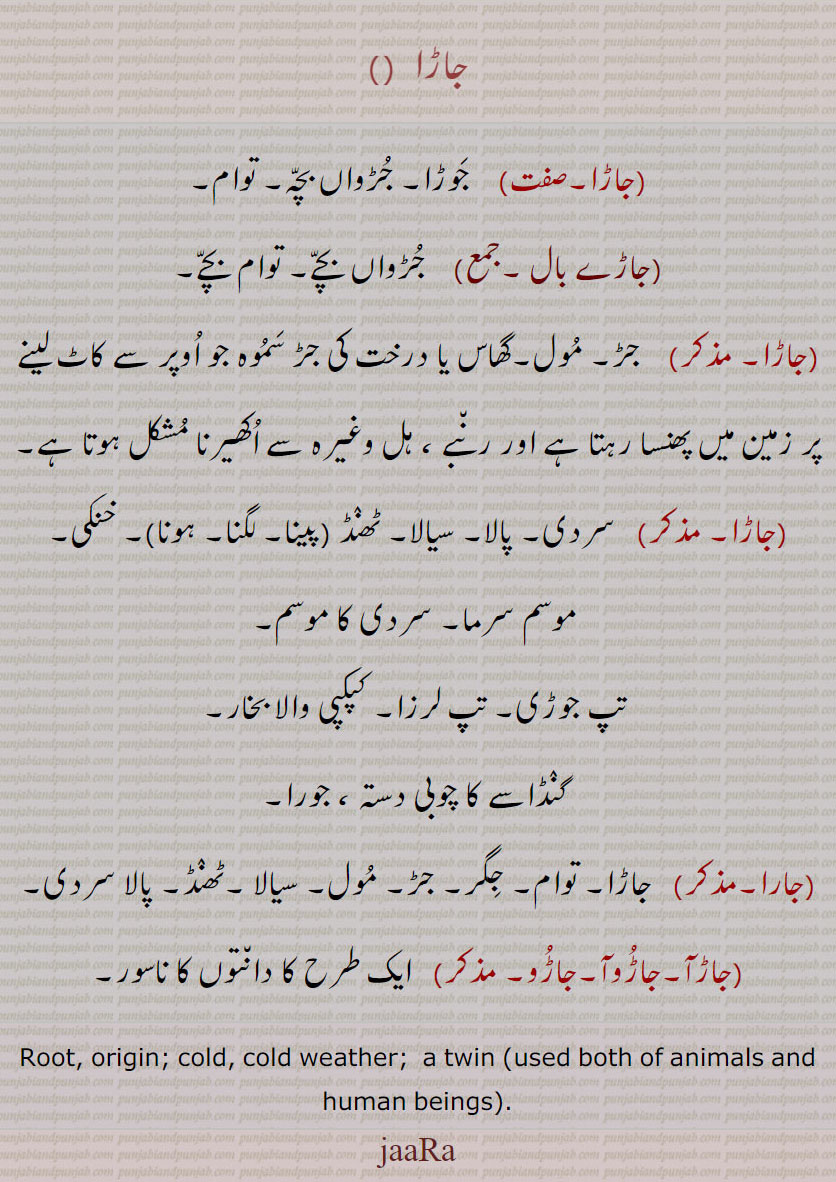 جاڑا ()
(جاڑا۔صفت) جَوڑا۔ جُڑواں بچہّ۔ توام۔
(جاڑے بال ۔جمع) جُڑواں بچےّ۔ توام بچےّ۔
(جاڑا۔ مذکر) جڑ۔ مُول۔گھاس یا درخت کی جڑ سَمُوہ جو اُوپر سے کاٹ لینے
پر زمین میں پھنسا رہتا ہے اور رنّبے ، ہل وغیرہ سے اُکھیرنا مُشکل ہوتا ہے۔
(جاڑا۔ مذکر) سردی۔ پالا۔ سیالا۔ ٹھنڈ (پینا۔ لگنا۔ ہونا)۔ خنکی۔
موسم سرما۔ سردی کا موسم۔
تپ جوڑی۔ تپ لرزا۔ کپکپی والا بخار۔
گنڈاسے کا چوبی دستہ ، جورا۔
(جارا۔مذکر) جاڑا۔ توام۔ جِگر۔ جڑ۔ مُول۔ سیالا ۔ٹھنڈ۔ پالا سردی۔
(جاڑآ۔جاڑُوآ۔جاڑُو۔ مذکر) ایک طرح کا دانتّوں کا ناسور۔
Root, origin; cold, cold weather; a twin (used both of animals and
human beings).
jaaRa
punjabiandpunjab.com